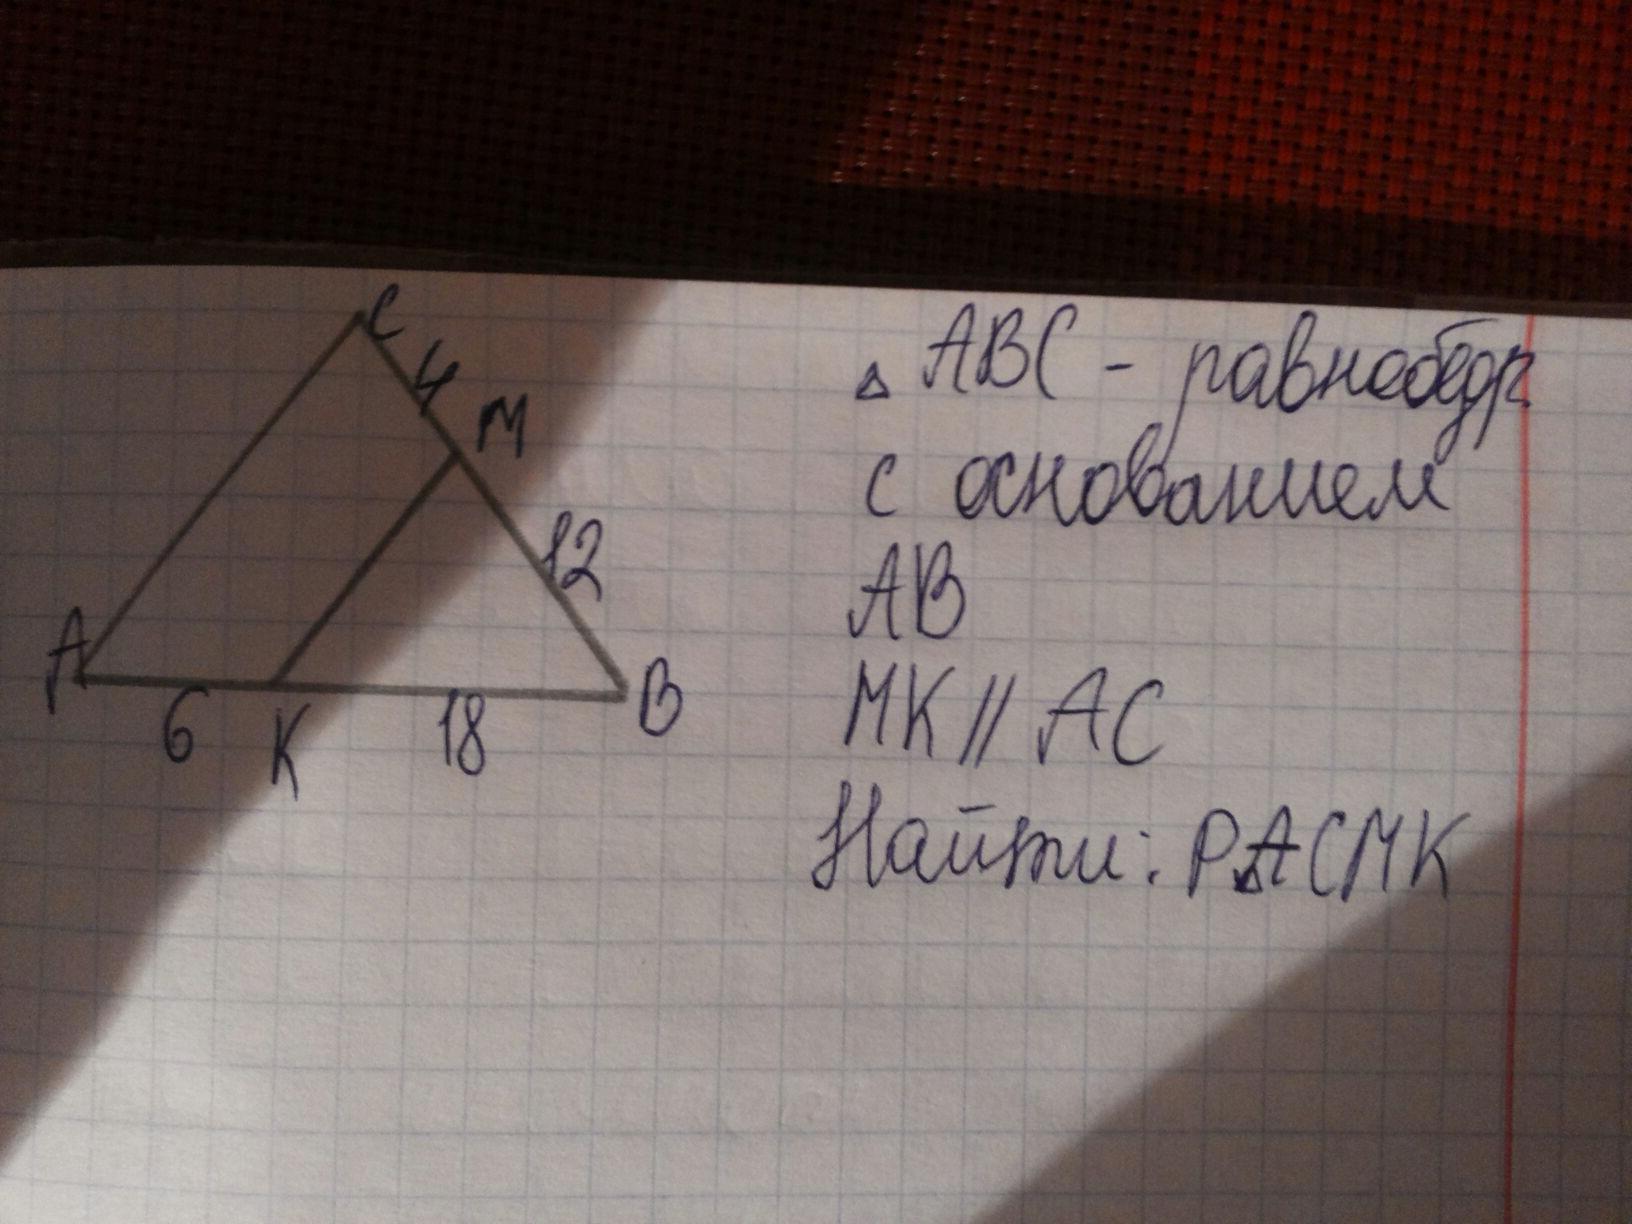 C
4
M
12
A
6
K
18
B
△ ABC - равнобедр.
с основанием
AB
MK // AC
Найти: P ACMK